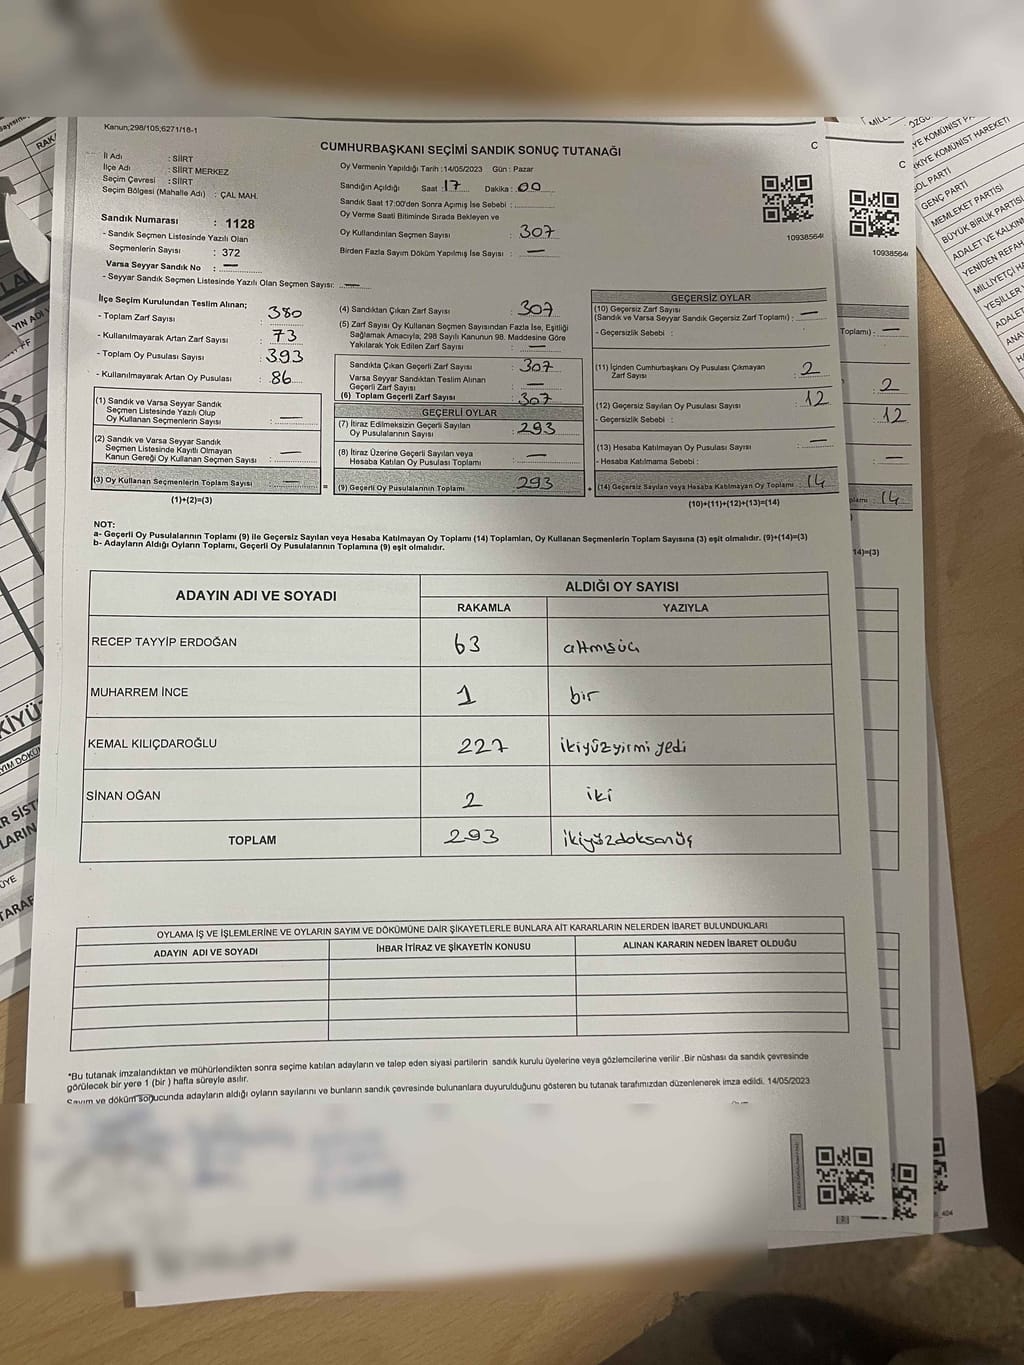 Kanun;298/105;6271/18-1
CUMHURBAŞKANI SEÇİMİ SANDIK SONUÇ TUTANAĞI
C
İl Adı : SİİRT
İlçe Adı : SİİRT MERKEZ
Seçim Çevresi : SİİRT
Seçim Bölgesi (Mahalle Adı) : ÇAL MAH.
Sandık Numarası : 1128
- Sandık Seçmen Listesinde Yazılı Olan
Seçmenlerin Sayısı : 372
Varsa Seyyar Sandık No : —
- Seyyar Sandık Seçmen Listesinde Yazılı Olan Seçmen Sayısı: —
Oy Vermenin Yapıldığı Tarih : 14/05/2023 Gün : Pazar
Sandığın Açıldığı Saat : 17 Dakika : 00
Sandık Saat 17:00'den Sonra Açımış İse Sebebi :
Oy Verme Saati Bitiminde Sırada Bekleyen ve
Oy Kullandırılan Seçmen Sayısı : 307
Birden Fazla Sayım Döküm Yapılmış İse Sayısı : —
10938564
İlçe Seçim Kurulundan Teslim Alınan;
- Toplam Zarf Sayısı : 380
- Kullanılmayarak Artan Zarf Sayısı : 73
- Toplam Oy Pusulası Sayısı : 393
- Kullanılmayarak Artan Oy Pusulası : 86
(1) Sandık ve Varsa Seyyar Sandık
Seçmen Listesinde Yazılı Olup
Oy Kullanan Seçmenlerin Sayısı : —
(2) Sandık ve Varsa Seyyar Sandık
Seçmen Listesinde Kayıtlı Olmayan
Kanun Gereği Oy Kullanan Seçmen Sayısı : —
(3) Oy Kullanan Seçmenlerin Toplam Sayısı : —
(1)+(2)=(3)
(4) Sandıktan Çıkan Zarf Sayısı : 307
(5) Zarf Sayısı Oy Kullanan Seçmen Sayısından Fazla İse, Eşitliği
Sağlamak Amacıyla, 298 Sayılı Kanunun 98. Maddesine Göre
Yakılarak Yok Edilen Zarf Sayısı : —
Sandıkta Çıkan Geçerli Zarf Sayısı : 307
Varsa Seyyar Sandıktan Teslim Alınan
Geçerli Zarf Sayısı : —
(6) Toplam Geçerli Zarf Sayısı : 307
GEÇERLİ OYLAR
(7) İtiraz Edilmeksizin Geçerli Sayılan
Oy Pusulalarının Sayısı : 293
(8) İtiraz Üzerine Geçerli Sayılan veya
Hesaba Katılan Oy Pusulası Toplamı : —
(9) Geçerli Oy Pusulalarının Toplamı : 293
GEÇERSİZ OYLAR
(10) Geçersiz Zarf Sayısı
(Sandık ve Varsa Seyyar Sandık Geçersiz Zarf Toplamı) : —
- Geçersizlik Sebebi :
(11) İçinden Cumhurbaşkanı Oy Pusulası Çıkmayan
Zarf Sayısı : 2
(12) Geçersiz Sayılan Oy Pusulası Sayısı : 12
- Geçersizlik Sebebi :
(13) Hesaba Katılmayan Oy Pusulası Sayısı : —
- Hesaba Katılmama Sebebi :
(14) Geçersiz Sayılan veya Hesaba Katılmayan Oy Toplamı : 14
(10)+(11)+(12)+(13)=(14)
NOT:
a- Geçerli Oy Pusulalarının Toplamı (9) ile Geçersiz Sayılan veya Hesaba Katılmayan Oy Toplamı (14) Toplamları, Oy Kullanan Seçmenlerin Toplam Sayısına (3) eşit olmalıdır. (9)+(14)=(3)
b- Adayların Aldığı Oyların Toplamı, Geçerli Oy Pusulalarının Toplamına (9) eşit olmalıdır.
ADAYIN ADI VE SOYADI ALDIĞI OY SAYISI
RAKAMLA YAZIYLA
RECEP TAYYİP ERDOĞAN 63 altmışüç
MUHARREM İNCE 1 bir
KEMAL KILIÇDAROĞLU 227 ikiyüzyirmi yedi
SİNAN OĞAN 2 iki
TOPLAM 293 ikiyüzdoksanüç
OYLAMA İŞ VE İŞLEMLERİNE VE OYLARIN SAYIM VE DÖKÜMÜNE DAİR ŞİKAYETLERLE BUNLARA AİT KARARLARIN NELERDEN İBARET BULUNDUKLARI
ADAYIN ADI VE SOYADI İHBAR İTİRAZ VE ŞİKAYETİN KONUSU ALINAN KARARIN NEDEN İBARET OLDUĞU
*Bu tutanak imzalandıktan ve mühürlendikten sonra seçime katılan adayların ve talep eden siyasi partilerin sandık kurulu üyelerine veya gözlemcilerine verilir .Bir nüshası da sandık çevresinde
görülecek bir yere 1 (bir ) hafta süreyle asılır.
Sayım ve döküm sonucunda adayların aldığı oyların sayılarını ve bunların sandık çevresinde bulunanlara duyurulduğunu gösteren bu tutanak tarafımızdan düzenlenerek imza edildi. 14/05/2023
C
10938564
Toplamı) : —
2
12
—
14
14)=(3)
SOL PARTİ
GENÇ PARTİ
MEMLEKET PARTİSİ
BÜYÜK BİRLİK PARTİSİ
ADALET VE KALKIN
YENİDEN REFAH
MİLLİYETÇİ HA
YEŞİLLER
ADALET
ANA